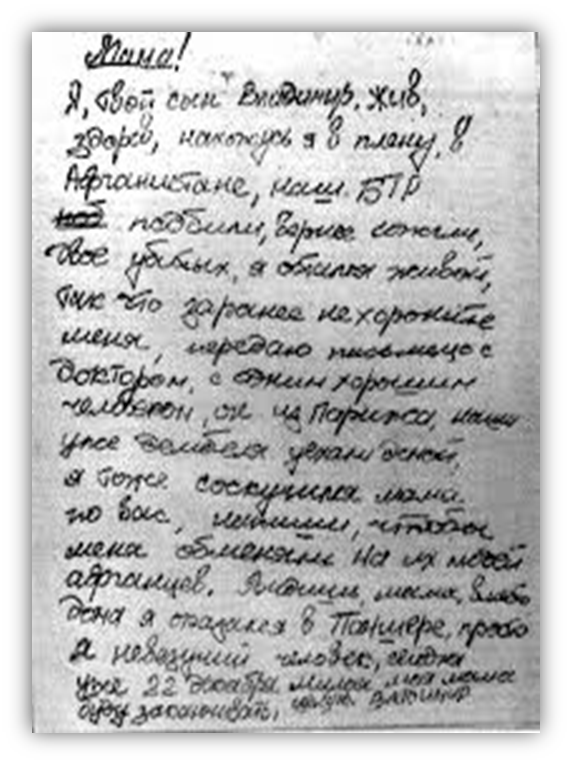 Мама!
Я, твой сын Владимир. жив,
здоров, нахожусь я в плену, в
Афганистане, наш БТР
под подбили, вернее сожгли,
двое убитых, я остался живой,
так что заранее не хороните
меня, передаю письмецо с
доктором, с одним хорошим
человеком, он из Парижа, наши
уже дембеля уехали домой,
я тоже соскучился мама
по вас, напиши, чтобы
меня обменяли на их
афганцев. мама,
дома я оказался в Паншере, просто
я невезучий человек,
уже 22 милая моя мама
буду заканчивать, Владимир